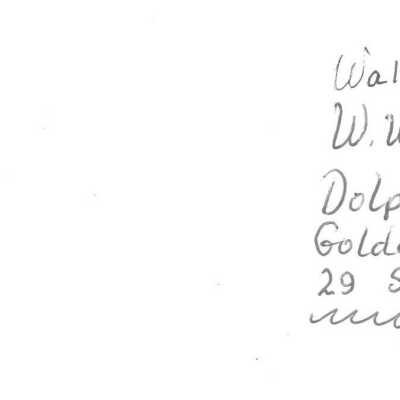 Wal
W. W
Dolp
Golde
29 S